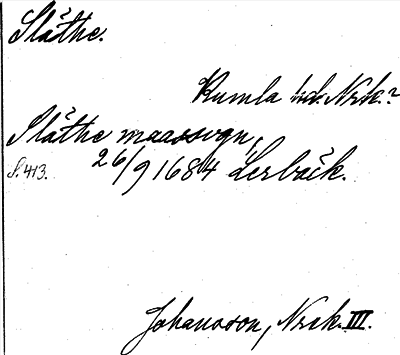 Slåthe.
Kumla hd. Nrk.?
Slåthe maassvgn,
S. 413. 26/9 1684 Lerbäck.
Johansson, Nrck. III.